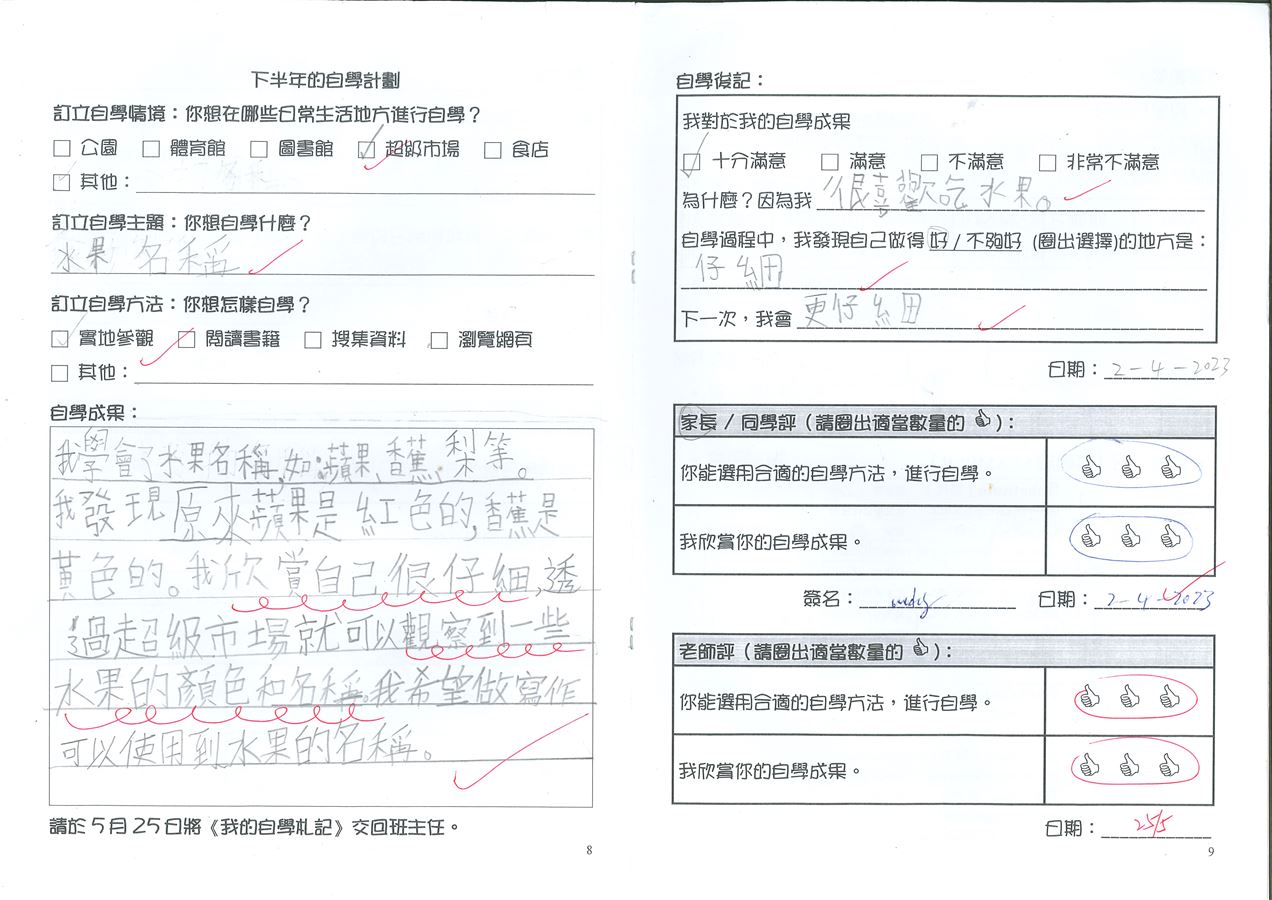 下半年的自學計劃
訂立自學情境：你想在哪些日常生活地方進行自學？
□ 公園 □ 體育館 □ 圖書館 ☑ 超級市場 □ 食店
□ 其他：
訂立自學主題：你想自學什麼？
水果名稱
訂立自學方法：你想怎樣自學？
☑ 實地參觀 □ 閱讀書籍 □ 搜集資料 □ 瀏覽網頁
□ 其他：
自學成果：
我學會了水果名稱,如:蘋果、香蕉、梨等。
我發現原來蘋果是紅色的,香蕉是
黃色的。我欣賞自己很仔細,透
過超級市場就可以觀察到一些
水果的顏色和名稱。我希望做寫作
可以使用到水果的名稱。
請於5月25日將《我的自學札記》交回班主任。
8
自學後記：
我對於我的自學成果
☑ 十分滿意 □ 滿意 □ 不滿意 □ 非常不滿意
為什麼？因為我很喜歡吃水果。
自學過程中，我發現自己做得好/不夠好 (圈出選擇)的地方是：
仔細
下一次，我會更仔細
日期：2-4-2023
家長 / 同學評（請圈出適當數量的 👍）：
你能選用合適的自學方法，進行自學。 👍 👍 👍
我欣賞你的自學成果。 👍 👍 👍
簽名： 日期：2-4-2023
老師評（請圈出適當數量的 👍）：
你能選用合適的自學方法，進行自學。 👍 👍 👍
我欣賞你的自學成果。 👍 👍 👍
日期：25/5
9